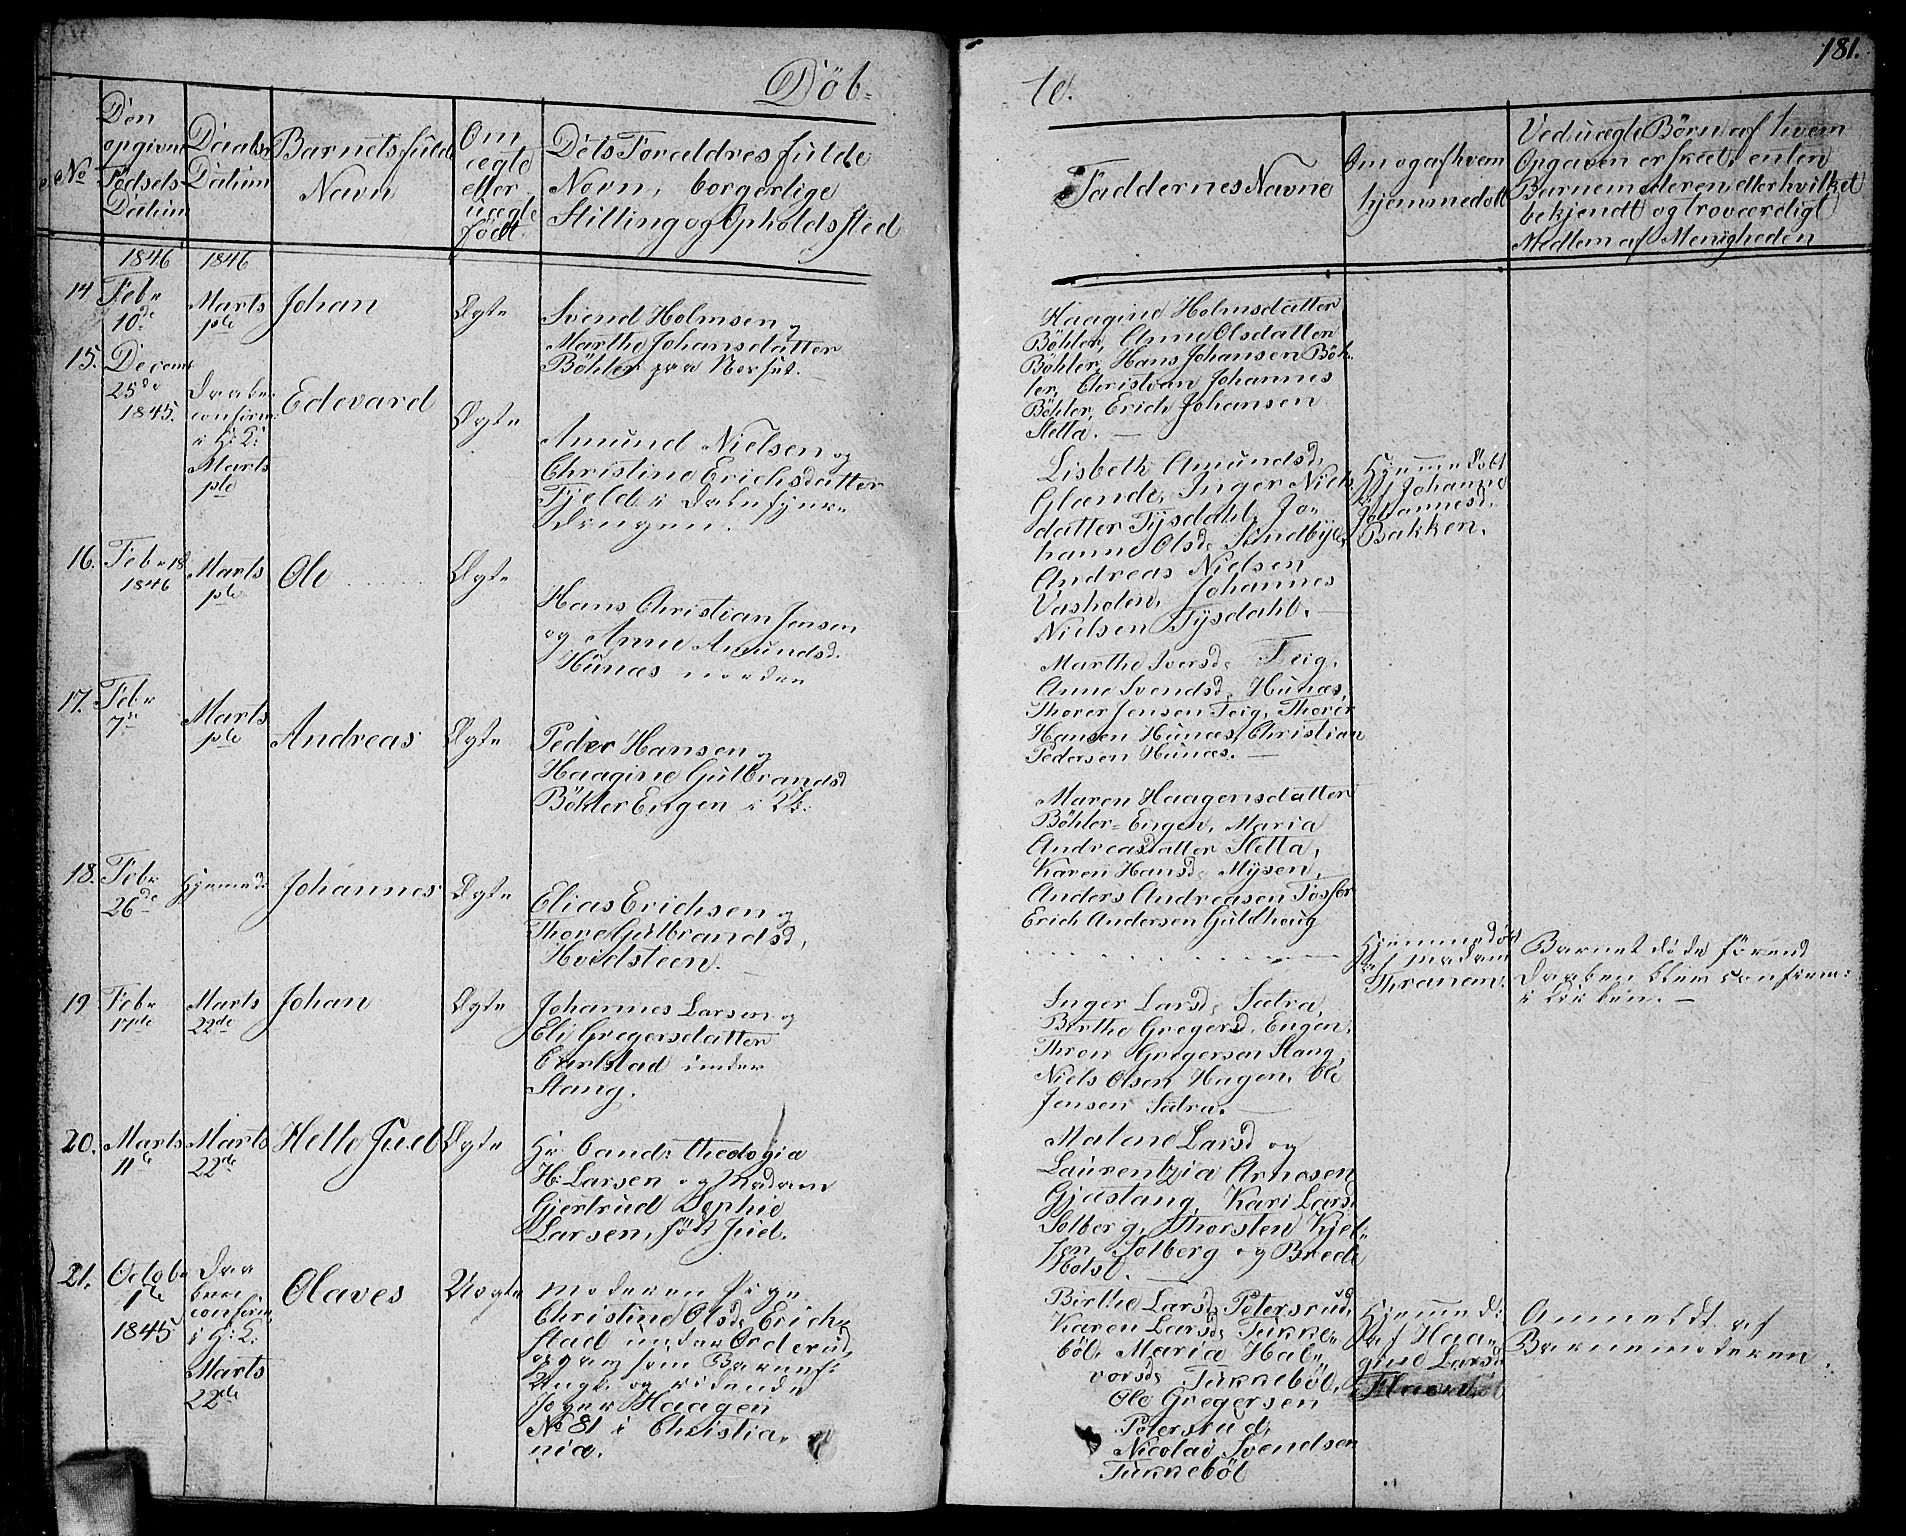 181.
Döb=
te.
No
Den
opgivne
Födsels
Datum
Daabs
Datum
Barnets fulde
Navn
Om
ægte
eller
uægte
födt.
Dets Forældres fulde
Navn, borgerlige
Stilling og Opholdssted
Faddernes Navne
Om og af hvem
hjemmedöbt
Ved uægte Börn af hvem
Opgaven er skeet, enten
Barnemoderen eller hvilket
bekjendt og troværdigt
Medlem af Menigheden
1846 1846
14 Febr
10de
Marts
1ste
Johan
Ægte
Svend Holmsen og
Marthe Johansdatter
Böhler paa
Haagine Holmsdatter
Böhler, Anne Olsdatter
Böhler, Hans Johansen Böh
ler, Christian Johannes
Böhler, Erich Johansen
Sletta. —
15. Decemb
25de
1845.
Daaben
confirm:
i H: K:
Marts
Edevard
Ægte
Amund Nielsen og
Christine Erichsdatter
Fjeld i
Lisbeth Amundsd.
Glende, Inger Niels
datter Tysdahl, Jo=
hanne Olsd. Sundbye,
Andreas Nielsen
Vasholen, Johannes
Nielsen Tysdahl. —
Hjemmedöbt
af Johanne
Johannesd.
Bakken.
16. Febr 18
1846
Marts
Ole
Ægte
Hans Christian Jensen
og Anne Amundsd.
Hunæs nordre
Marthe Iversd. Teig,
Anne Svendsd. Hunæs,
Thorer Jensen Teig, Thorer
Hansen Hunæs, Christian
Pedersen Hunæs. —
17. Febr
7de
Marts
Andreas
Ægte
Peder Hansen og
Haagine Gulbrandsd
Böhler Engen i
Maren Haagensdatter
Böhler=Engen, Maria
Andreasdatter Sletta,
Karen Hansd. Mysen,
Anders Andreasen Fosser
Erich Andersen Guldhoug
18. Febr
26de
Hjemmed.
Johannes
Ægte
Elias Erichsen og
Thore Gulbrandsd,
Hvidsteen. —
Hjemmedöbt
af Madam
Thranem.
Barnet döde förend
Daaben blev confirm:
i Kirken. —
19 Febr
17de
Marts
22de
Johan
Ægte
Johannes Larsen og
Eli Gregersdatter
Carlstad under
Stang.
Inger Larsd. Sætra,
Birthe Gregersd. Engen,
Thron Gregersen Stang,
Niels Olsen Hagen, Ole
Jensen Sætra. —
20. Marts
11te
Marts
22de
Helle Juel
Ægte
Hr Cand: theologia
H: Larsen og Madame
Gjertrud Sophie
Larsen, födt Juel.
Malene Larsd og
Laurentzia Arnesen
Gjæstang, Kari Larsd
Solberg, Thorsten Kjel=
sen Solberg og Brede
Holst. —
21. Octobr
1te
1845
Daa
ben
confirm
i H: K:
Marts
22de
Olaves
Uægte
Moderen Pige
Christine Olsd. Erich=
stad under Orderud,
opgav som Barnef:
Ungk. og ridende
Jæger Haagen
No 81 i Christia,
nia.
Birthe Larsd. Petersrud,
Karen Larsd. Tukke=
böl, Maria Hal=
vorsd. Tukkeböl,
Ole Gregersen
Petersrud,
Nicolai Svendsen
Tukkeböl
Hjemmed:
af Haa=
gine Larsd
Anmeldt af
Barnemoderen.